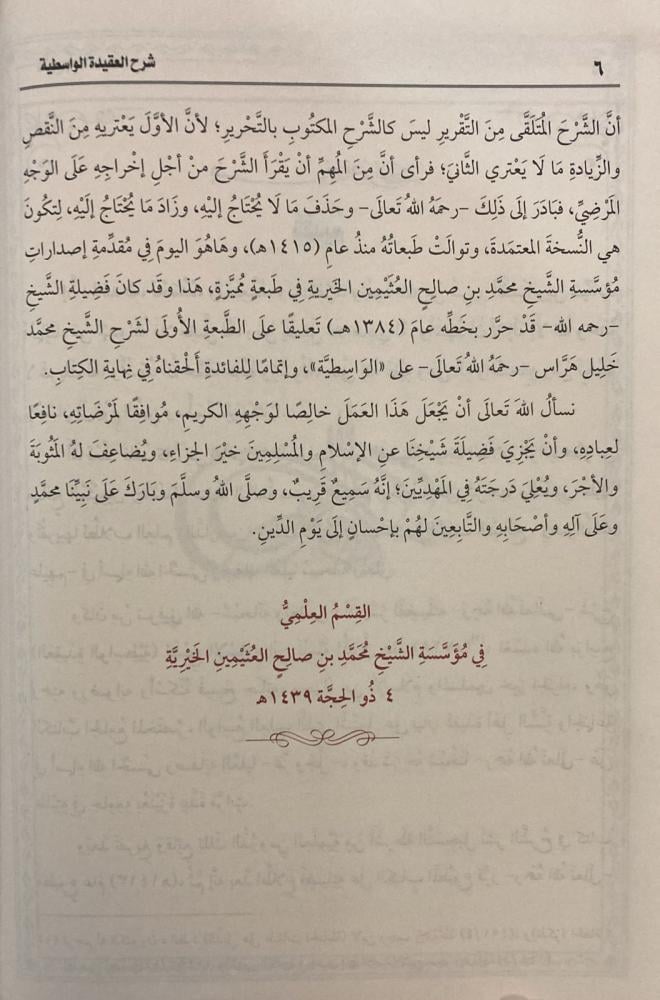 ٦ شرح العقيدة الواسطية
أنَّ الشَّرْحَ المُتَلَقَّى مِنَ التَّقْريرِ ليسَ كالشَّرْحِ المكتُوبِ بالتَّحْريرِ؛ لأنَّ الأوَّلَ يَعْتريهِ مِنَ النَّقصِ
والزِّيادةِ مَا لَا يَعْتري الثَّانيَ؛ فرأى أنَّ مِنَ المُهِمِّ أنْ يَقْرَأَ الشَّرْحَ منْ أجْلِ إخْراجِهِ عَلَى الوَجْهِ
المَرْضِيِّ، فبَادَرَ إلَى ذَلِكَ -رحمَهُ اللهُ تَعالَى- وحَذَفَ مَا لَا يُحْتَاجُ إليْهِ، وزَادَ مَا يُحْتَاجُ إلَيْهِ، لِتكُونَ
هي النُّسخةَ المعتمَدةَ، وتوالَتْ طَبعاتُهُ منذُ عامِ (١٤١٥هـ)، وهَاهُوَ اليومَ فِي مُقدِّمةِ إصداراتِ
مُؤسَّسةِ الشَّيخِ محمَّدِ بنِ صالحٍ العُثَيْمِين الخَيريةِ فِي طَبعةٍ مُميَّزةٍ، هَذا وقَد كانَ فَضِيلةِ الشَّيخِ
-رحمه الله- قَدْ حرَّر بخَطِّه عامَ (١٣٨٤هـ) تَعليقًا علَى الطَّبعةِ الأُولَى لشَرْحِ الشَّيخِ محمَّد
خَلِيل هَرَّاس -رحمَهُ اللهُ تَعالَى- على «الوَاسِطيَّة»، وإتمامًا للفائدةِ أَلْحقناهُ فِي نِهايةِ الكِتابِ.
نسألُ اللهَ تَعالَى أنْ يَجْعَلَ هَذَا العَمَلَ خالِصًا لوَجْهِهِ الكريمِ، مُوافِقًا لمَرْضَاتِهِ، نافِعًا
لعِبادِهِ، وأنْ يَجْزِيَ فَضِيلَةَ شَيْخِنَا عنِ الإسْلامِ والمُسْلِمِينَ خيْرَ الجزاءِ، ويُضاعِفَ لهُ المَثُوبَةَ
والأجْرَ، ويُعْلِيَ دَرجَتَهُ فِي المَهْدِيِّينَ؛ إنَّهُ سَمِيعٌ قَرِيبٌ، وصلَّى اللهُ وسلَّمَ وبَارَكَ عَلَى نَبِيِّنَا محمَّدٍ
وعَلَى آلِهِ وأصْحَابِهِ والتَّابِعِينَ لهُمْ بإحْسانٍ إلَى يَوْمِ الدِّينِ.
القِسْمُ العِلْمِيُّ
فِي مُؤَسَّسَةِ الشَّيْخِ مُحَمَّدِ بنِ صالحٍ العُثَيْمِينِ الخَيْرِيَّةِ
٤ ذُو الحِجَّة ١٤٣٩هـ